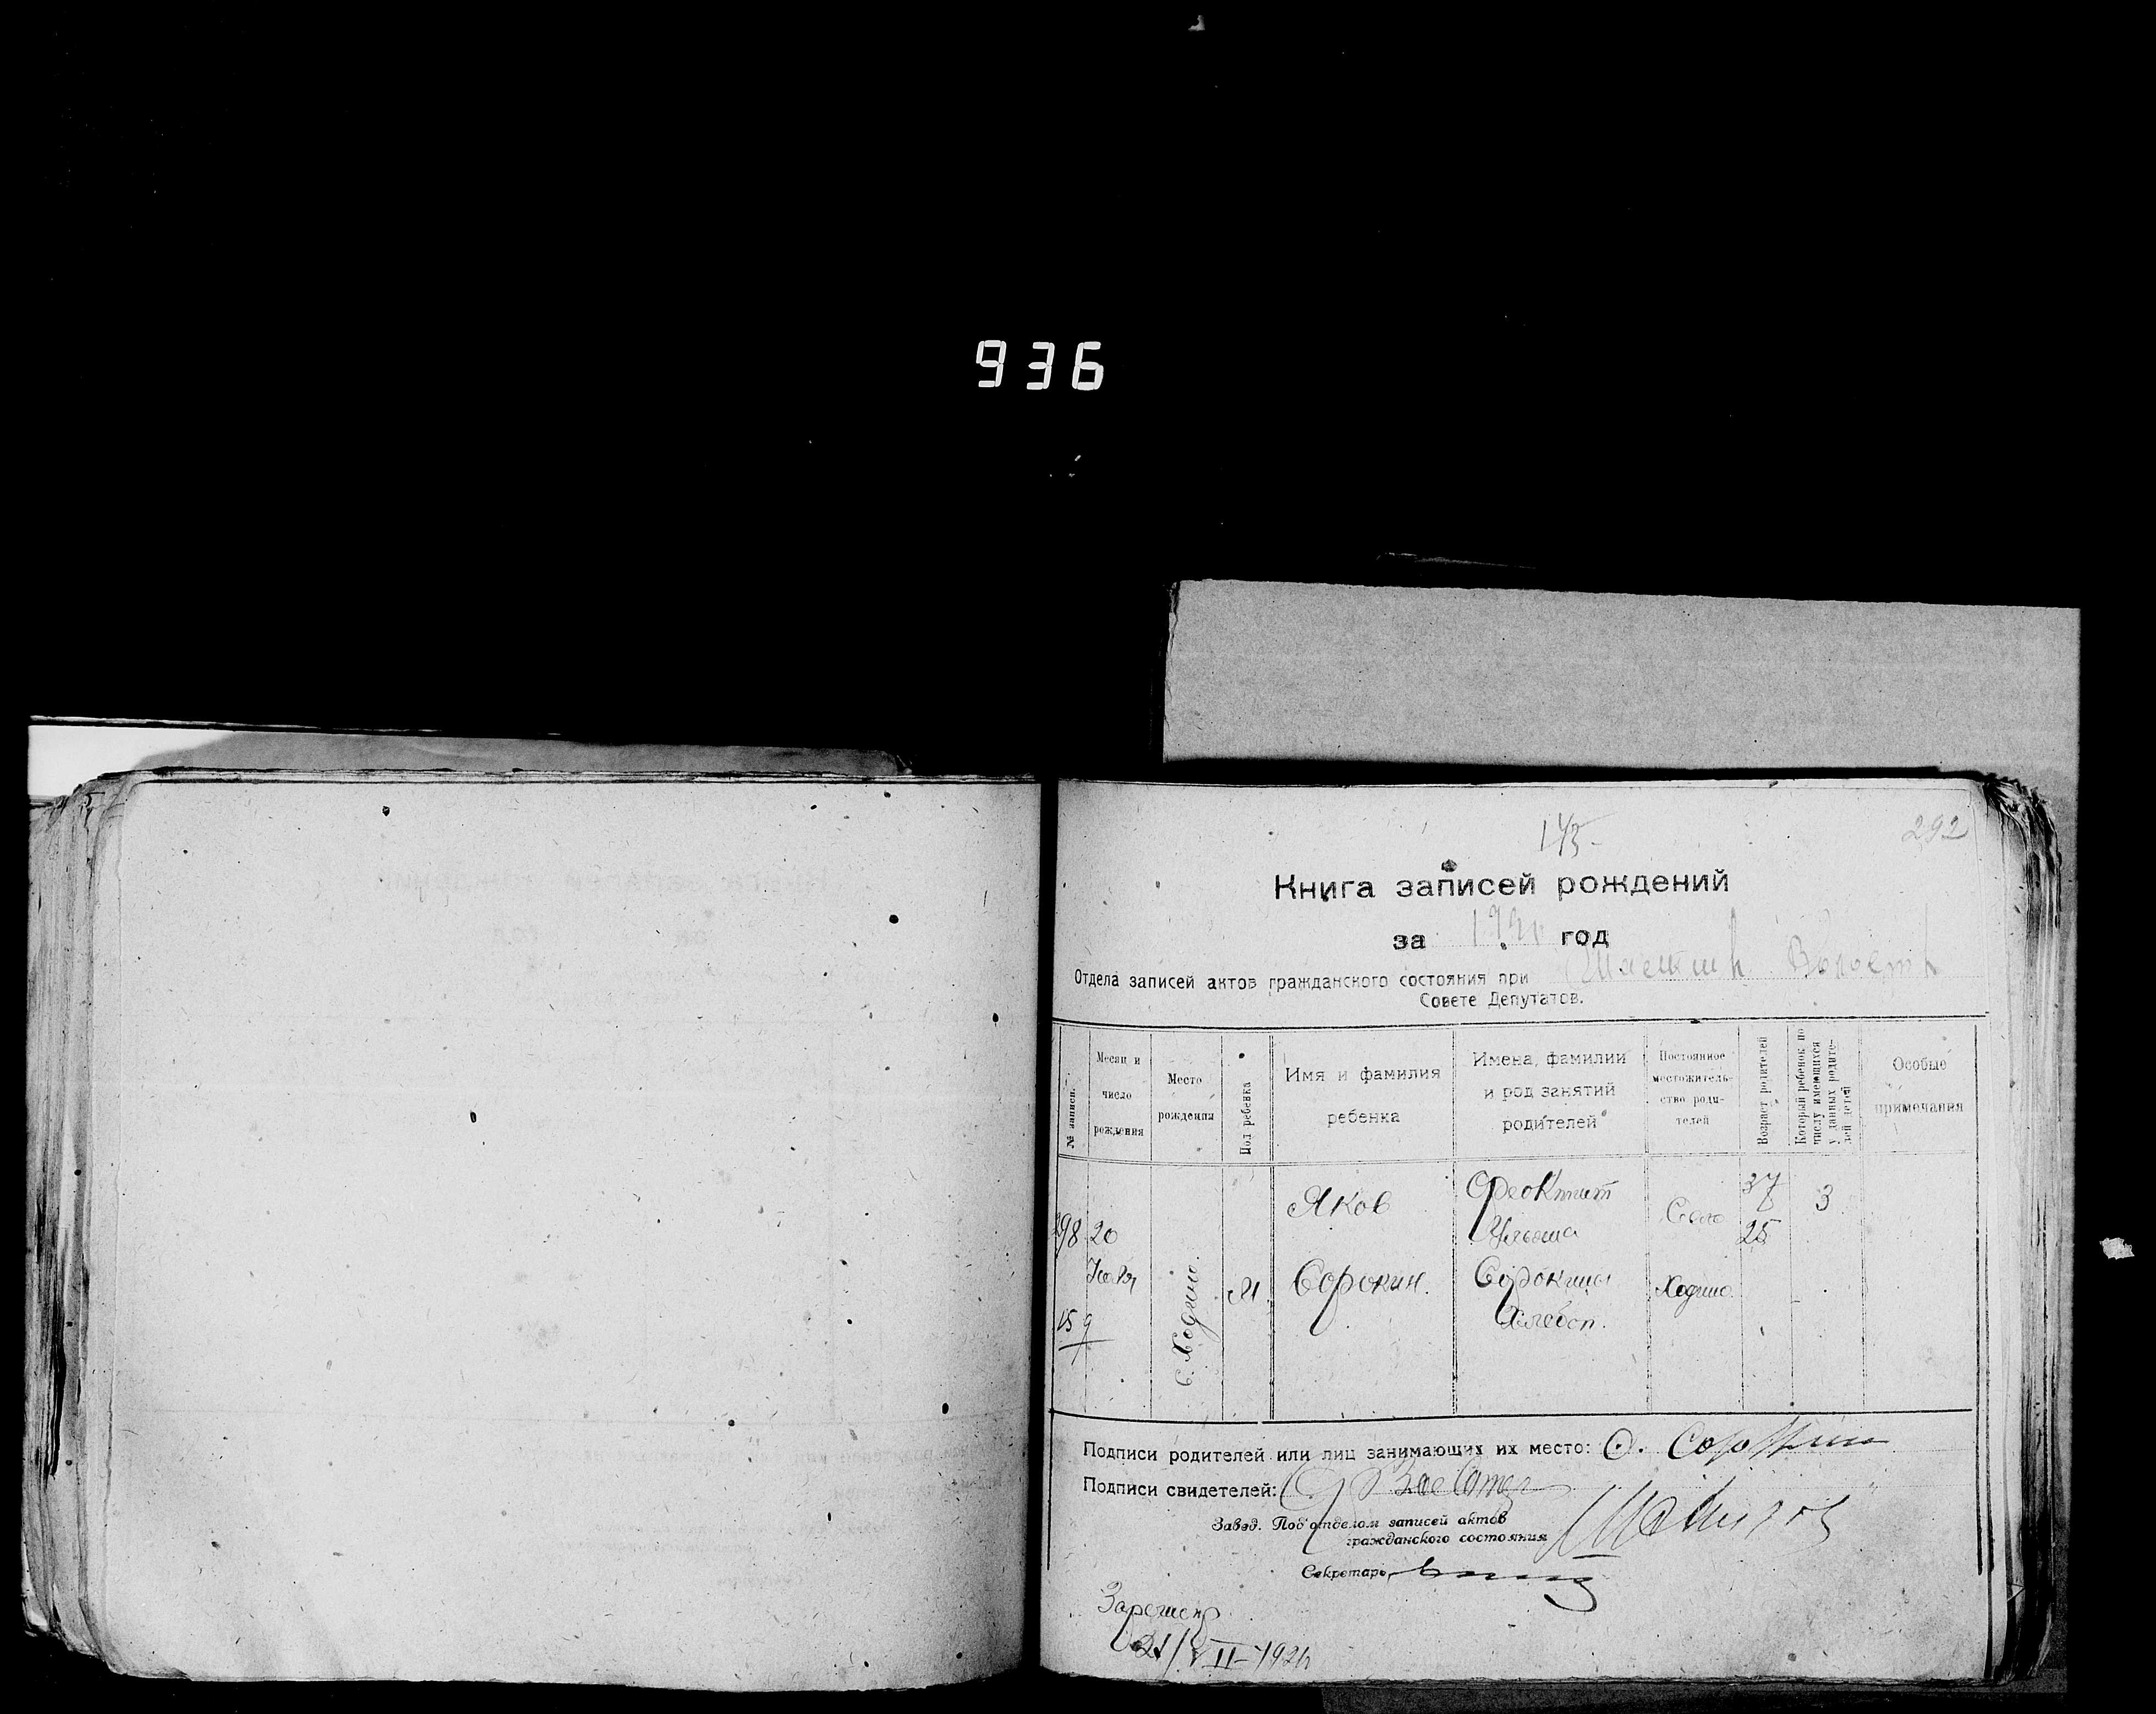 936
143
292
Книга записей рождений
за 192 год
Отдела записей актов гражданского состояния при
Совете Депутатов.
№ записи.
Месяц и
число
рождения
Место
рождения
Пол ребенка
Имя и фамилия
ребенка
Имена, фамилии
и род занятий
родителей
Постоянное
местожитель-
ство роди-
телей
Возраст родителей
Который ребенок по
числу имеющихся
у данных родите-
лей детей
Особые
примечания
298
159
20
Июля
с. Ходино.
М.
Яков
Сорокин.
Феоктист
Ульяна
Сорокины
Хлебоп.
Село
Ходино.
37
25
3
Подписи родителей или лиц занимающих их место: Ф. Сорокин
Подписи свидетелей:
Завед. Под'отделом записей актов
гражданского состояния
Секретарь
Зарегистр
21/VII-192